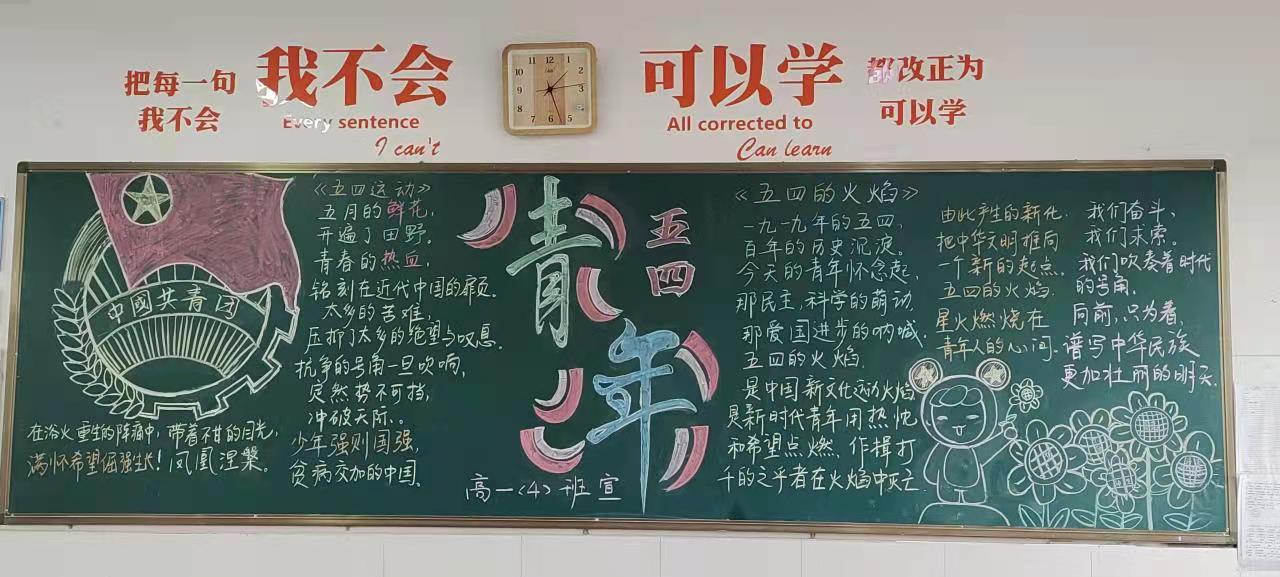 把每一句
我不会
我不会
Every sentence
I can't
12
1
2
3
5
6
7
8
9
10
11
可以学
All corrected to
Can learn
都改正为
可以学
中國共青团
在浴火重生的阵痛中,带着不甘的目光,
满怀希望倔强生长!凤凰涅槃。
《五四运动》
五月的鲜花,
开遍了田野。
青春的热血,
铭刻在近代中国的额页。
太多的苦难,
压抑了太多的绝望与叹息。
抗争的号角一旦吹响,
定然势不可挡,
冲破天际..
少年强则国强,
贫病交加的中国.
青年
五四
高一(4)班宣
《五四的火焰》
一九一九年的五四,
百年的历史沉淀。
今天的青年怀念起,
那民主,科学的萌动.
那爱国进步的呐喊.
五四的火焰.
是中国新文化运动火焰
是新时代青年用热忱
和希望点燃.作揖打
千的之乎者在火焰中灭亡.
由此产生的新化.
把中华文明推向
一个新的起点.
五四的火焰.
星火燃烧在
青年人的心间.
我们奋斗,
我们求索。
我们吹奏着时代
的号角.
向前,只为着,
谱写中华民族
更加壮丽的明天.